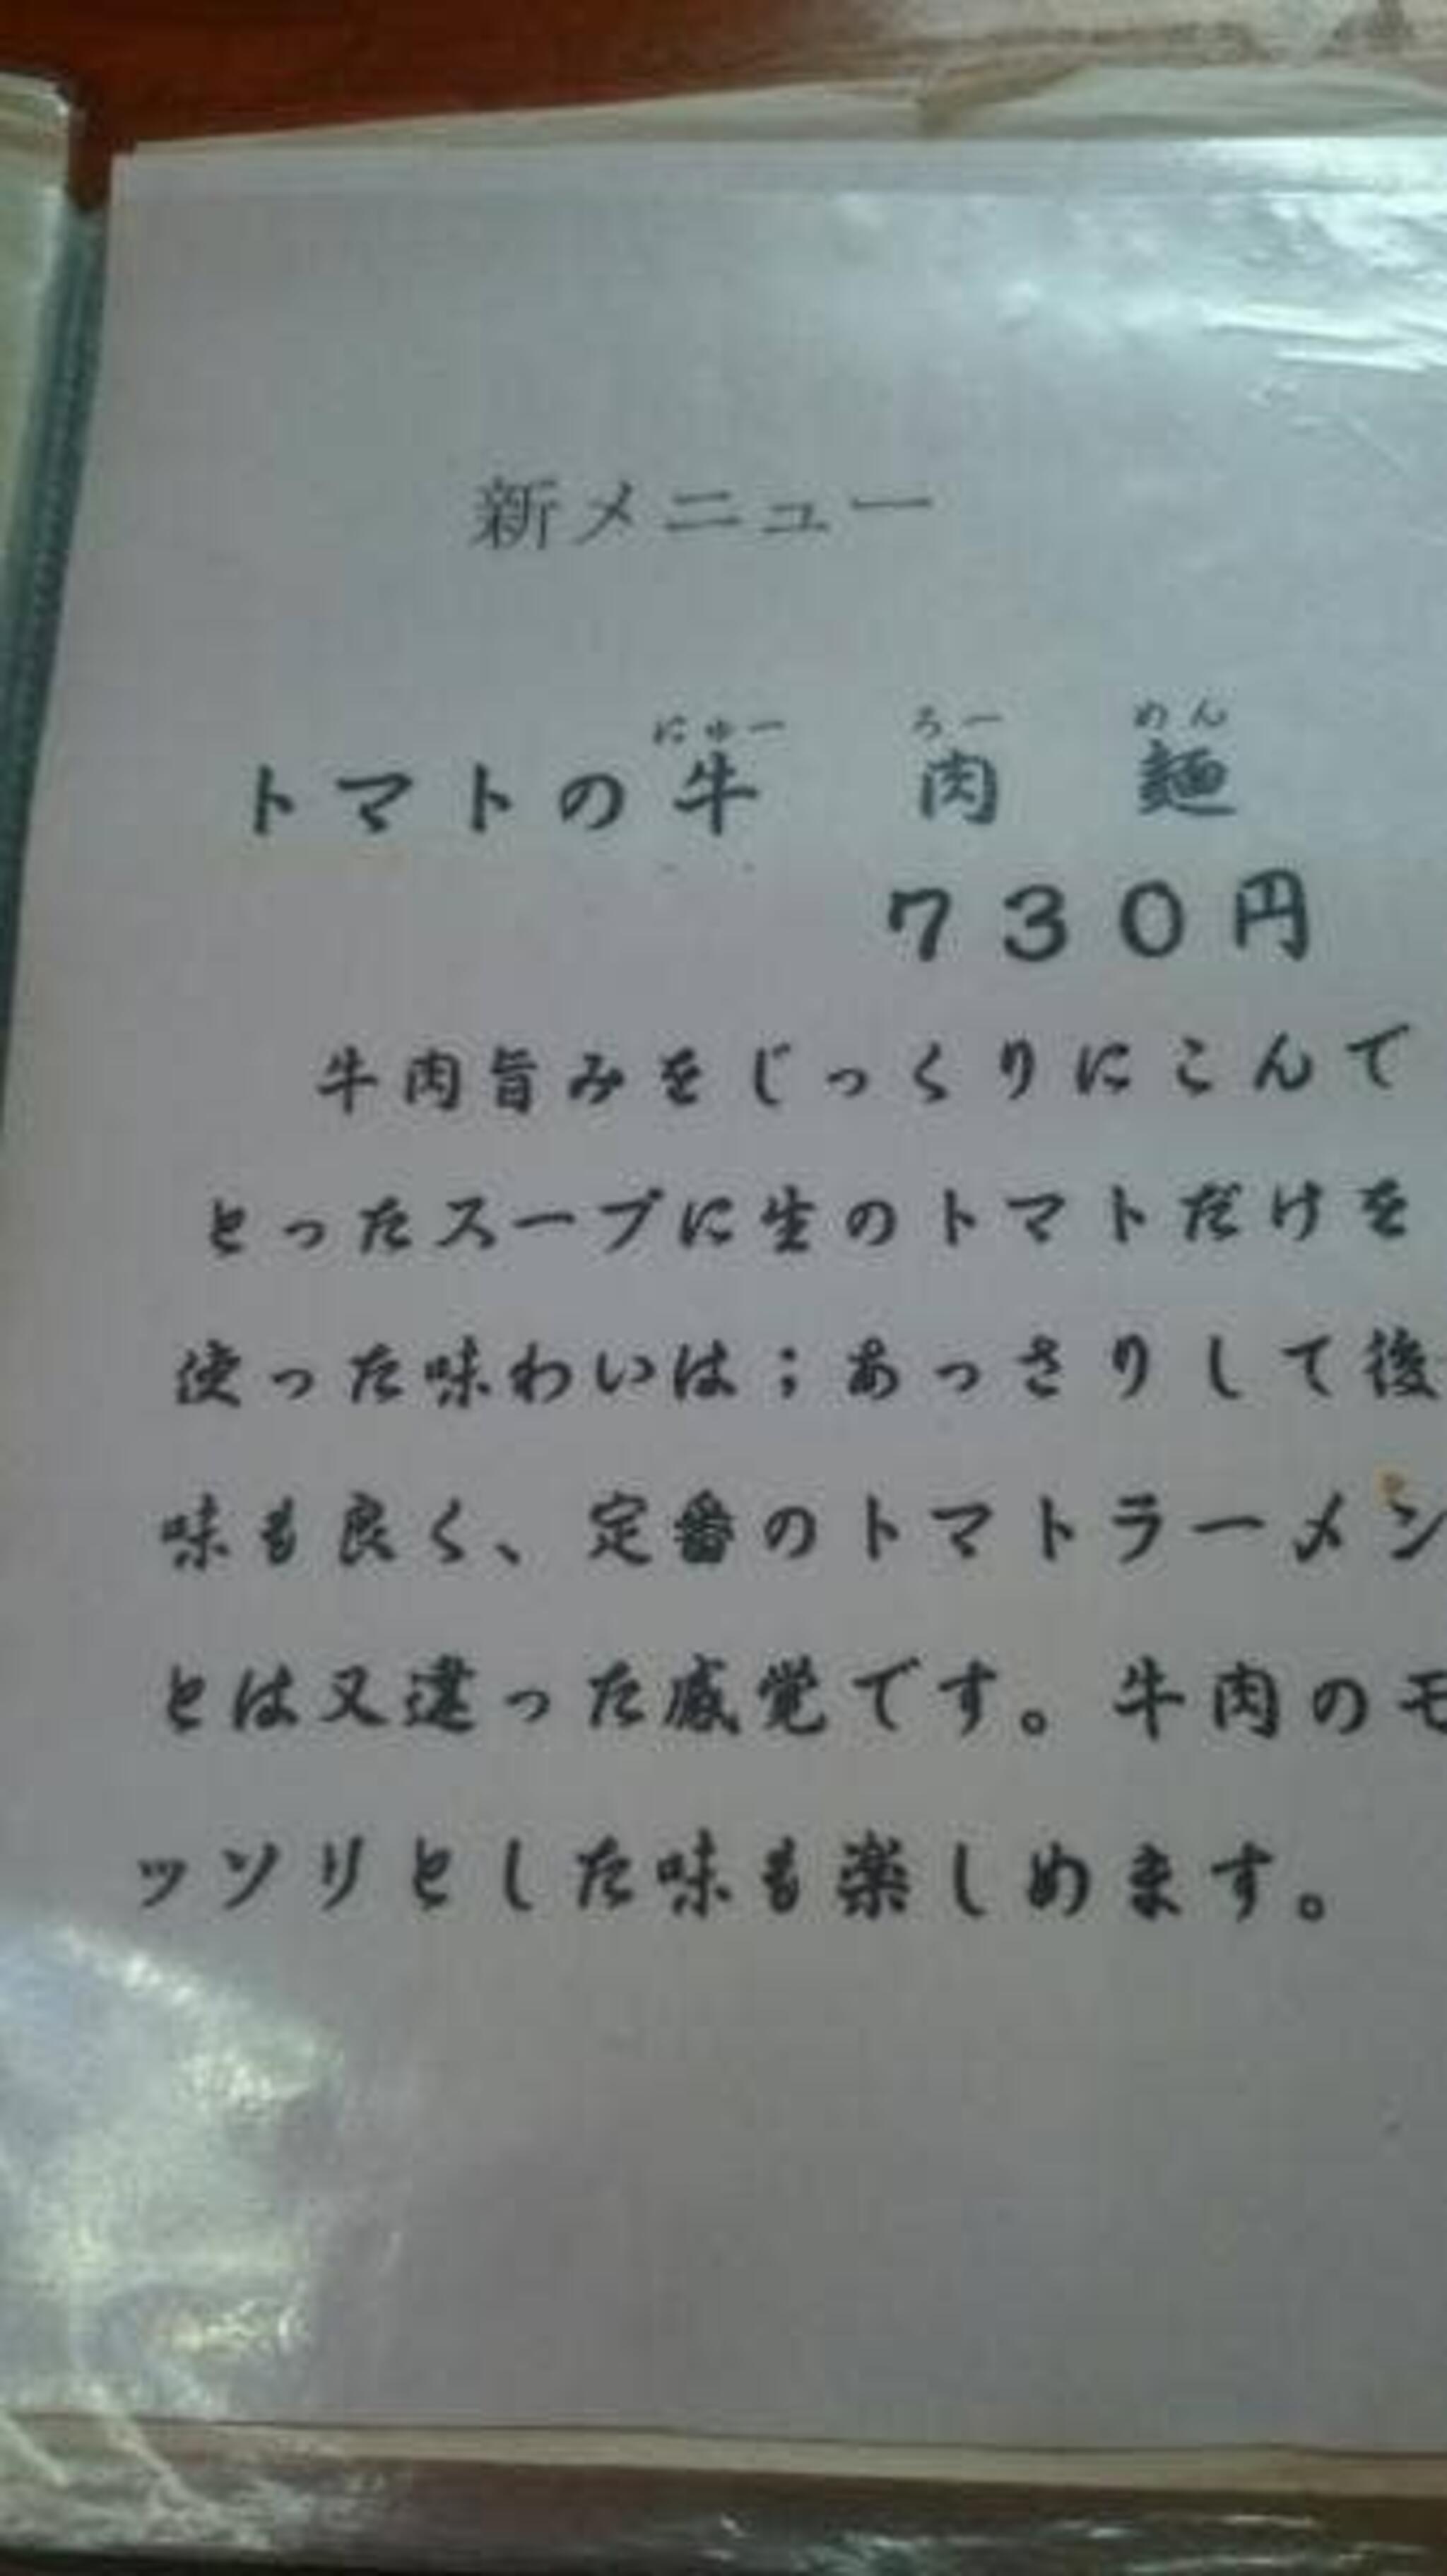 新メニュー
にゅー ろー めん
トマトの牛 肉 麺
７３０円
牛肉旨みをじっくりにこんで
とったスープに生のトマトだけを
使った味わいは；あっさりして後
味も良く、定番のトマトラーメン
とは又違った感覚です。牛肉のモ
ッソリとした味も楽しめます。